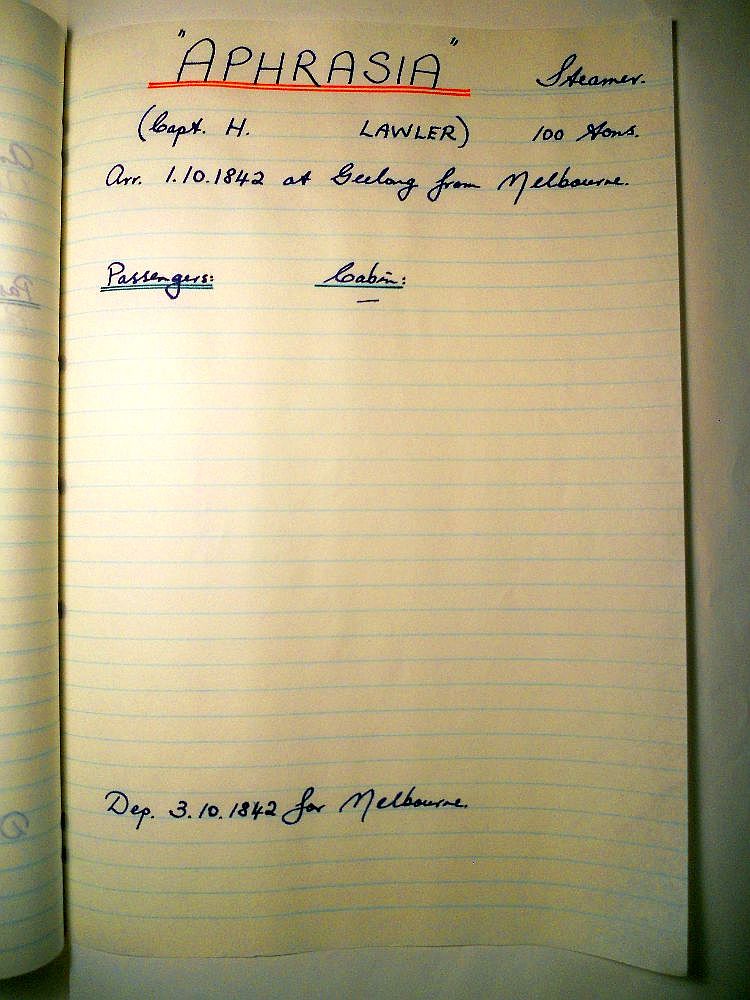 "APHRASIA" Steamer.
(Capt. H. LAWLER) 100 tons.
Arr. 1.10.1842 at Geelong from Melbourne.
Passengers: Cabin:
—
Dep. 3.10.1842 for Melbourne.